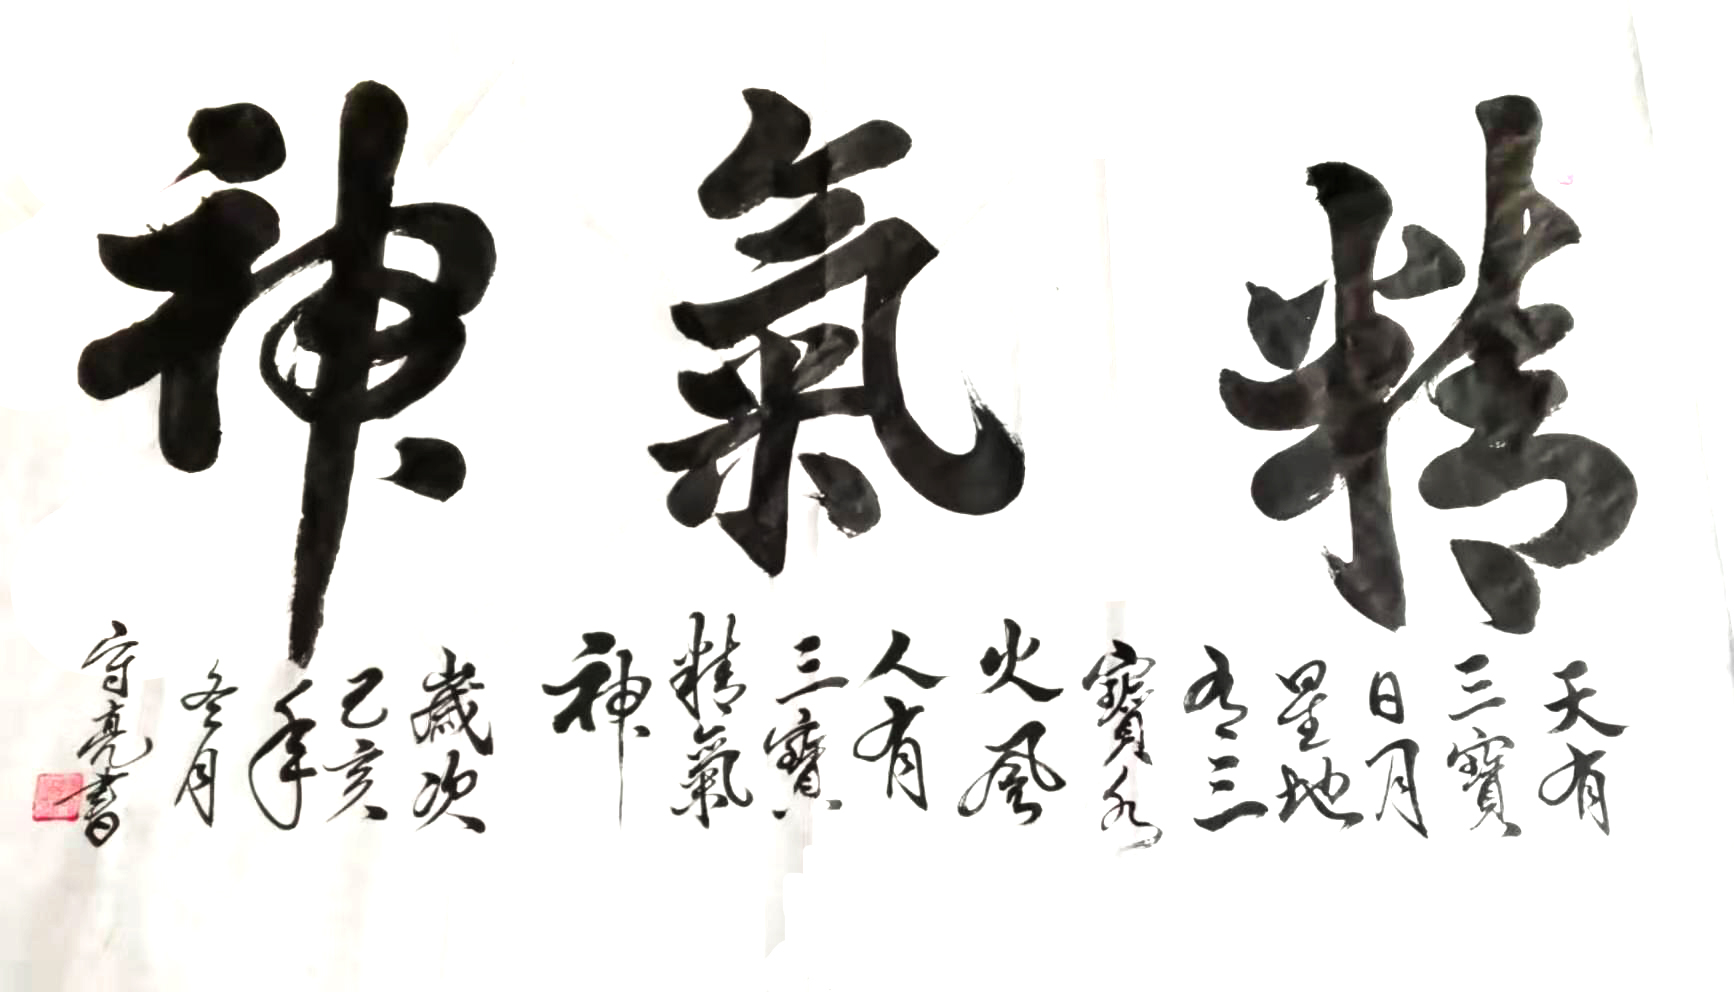 精氣神
天有
三寶
日月
星地
有三
寶水
火風
人有
三寶
精氣
神
歲次
己亥
年
冬月
守亮書